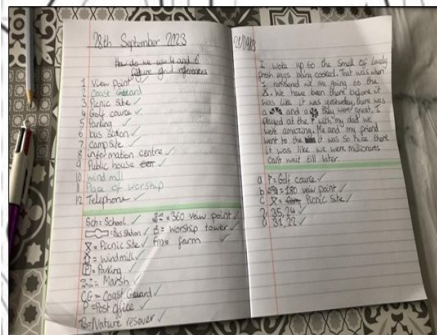 28th September 2023
How do we use 4 and 6
figure grid references
1 View Point
2 Coast Guard
3 Picnic Site ✓
4 Golf course ✓
5 Parking ✓
6 bus Station ✓
7 campsite ✓
8 information centre ✓
9 Public house ✓
10 wind mill
11 Place of worship
12 Telephone ✓
Sch = School ✓
= 360 veiw point ✓
= Bus station
= Worship tower ✓
= Picnic Site ✓
fm = farm
= windmill ✓
= Parking ✓
= Marsh ✓
CG = Coast Guard ✓
P = Post office ✓
= Nature resover ✓
I woke up to the smell of lovely
fresh eyes being cooked. That was when
I rememberd we are going on the
. We have been there before it
was like it was yesterday, there was
a and a They were great, I
played at the with my dad we
were amazing. Me and my friend
went to the it was so nice there
it was like we were millionares
Can't wait till later.
a = Golf course ✓
b = 180 veiw point ✓
c = Picnic Site ✓